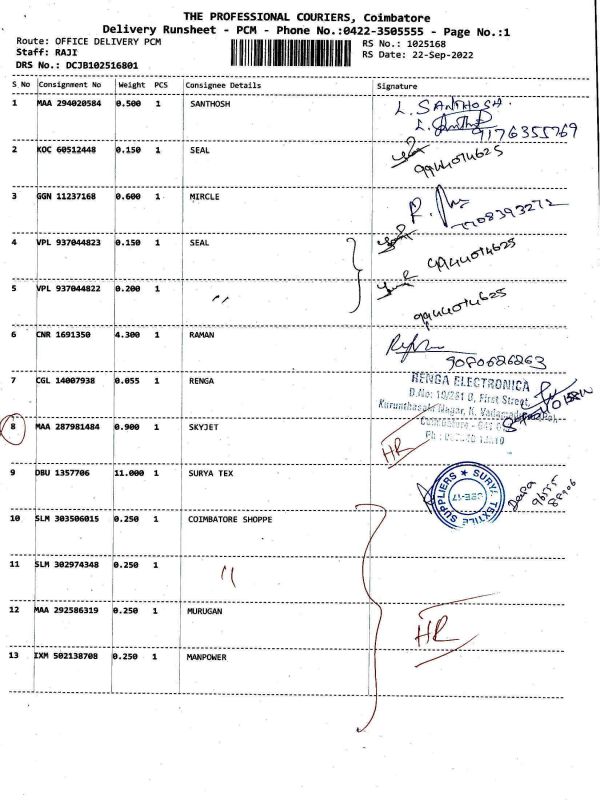 THE PROFESSIONAL COURIERS, Coimbatore
Delivery Runsheet - PCM - Phone No.:0422-3505555 - Page No.:1
Route: OFFICE DELIVERY PCM
RS No.: 1025168
Staff: RAJI
RS Date: 22-Sep-2022
DRS No.: DCJB102516801
S No Consignment No Weight PCS Consignee Details Signature
1 MAA 294020584 0.500 1 SANTHOSH L. SANTHOSH.
9176355769
2 KOC 60512448 0.150 1 SEAL 9944074625
3 GGN 11237168 0.600 1 MIRCLE 7708393272
4 VPL 937044823 0.150 1 SEAL 9944074625
5 VPL 937044822 0.200 1 〃 9944074625
6 CNR 1691350 4.300 1 RAMAN 9080626263
7 CGL 14007938 0.055 1 RENGA RENGA ELECTRONICA
D.No: 10/281 D, First Street,
Nagar, K.
Coimbatore - 641
8 MAA 287981484 0.900 1 SKYJET HR
9 DBU 1357706 11.000 1 SURYA TEX SURYA TEXTILE SUPPLIERS ★ CBE-17
10 SLM 303506015 0.250 1 COIMBATORE SHOPPE
11 SLM 302974348 0.250 1 〃
12 MAA 292586319 0.250 1 MURUGAN HR
13 IXM 502138708 0.250 1 MANPOWER